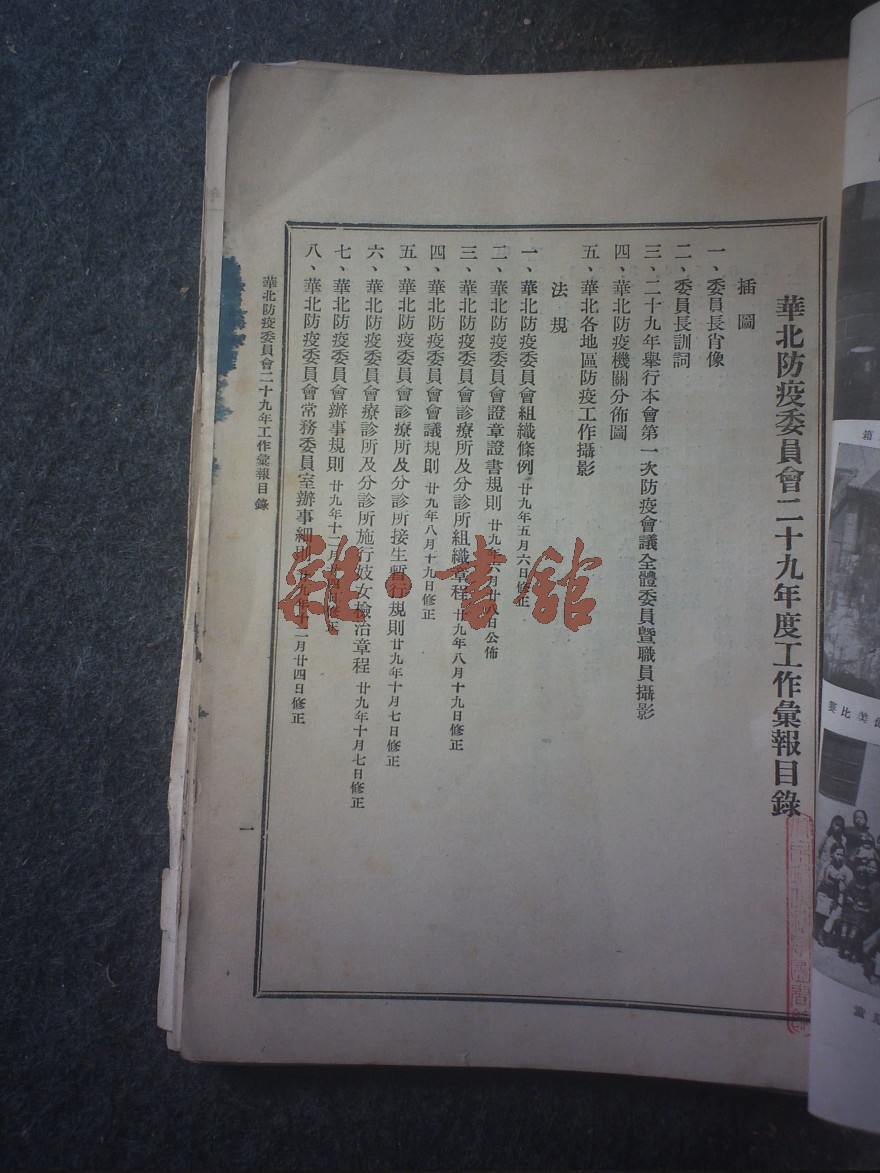 華北防疫委員會二十九年度工作彙報目錄
插圖
一、委員長肖像
二、委員長訓詞
三、二十九年舉行本會第一次防疫會議全體委員暨職員攝影
四、華北防疫機關分佈圖
五、華北各地區防疫工作攝影
法規
一、華北防疫委員會組織條例 廿九年五月六日修正
二、華北防疫委員會證章證書規則 廿九年六月廿八日公佈
三、華北防疫委員會診療所及分診所組織章程 廿九年八月十九日修正
四、華北防疫委員會會議規則 廿九年八月十九日修正
五、華北防疫委員會診療所及分診所接生暫行規則 廿九年十月七日修正
六、華北防疫委員會療診所及分診所施行妓女檢治章程 廿九年十月七日修正
七、華北防疫委員會辦事規則 廿九年十二月 修正
八、華北防疫委員會常務委員室辦事細則 廿九年十二月廿四日修正
華北防疫委員會二十九年工作彙報目錄
一
雜·書館